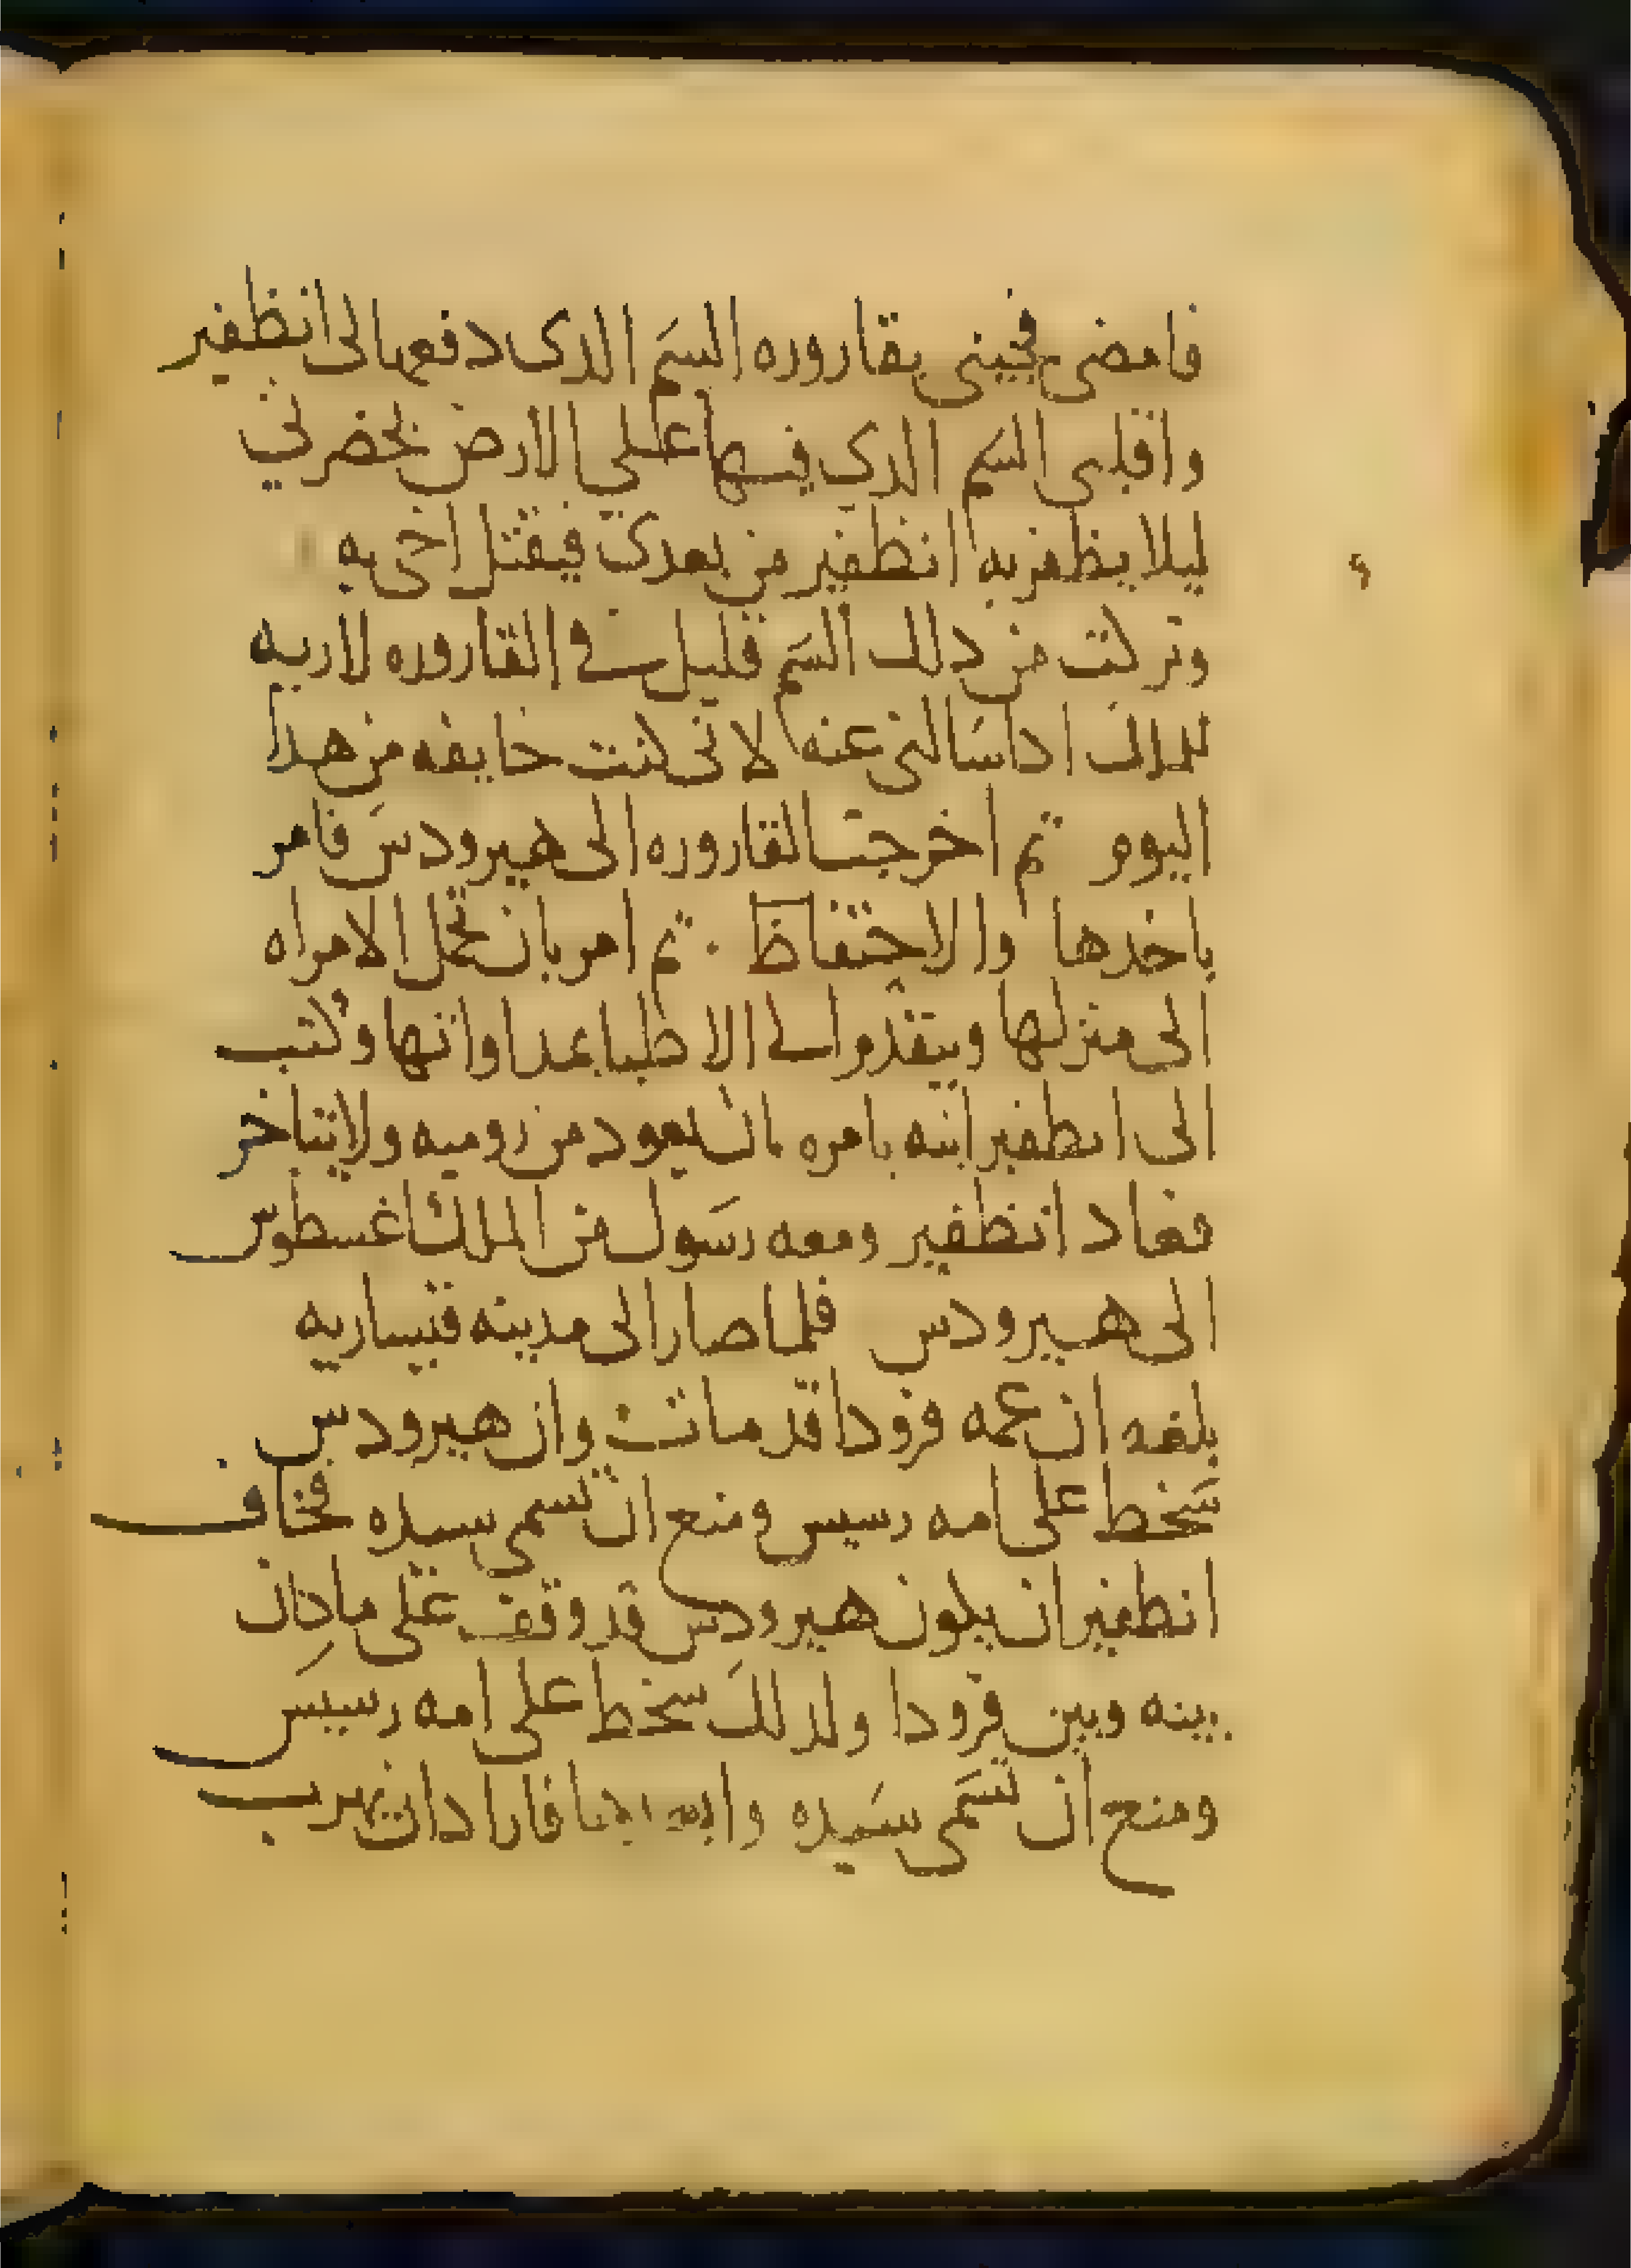 فامضى فجينى بقاروره السم الدى دفعها الى انظفير
واقلبى السم الدى فيها على الارض بحضرتي
ليلا يظفر به انظفير من بعدى فيقتل اخى به
وتركت من دلك السم قليل في القاروره لاريه
للملك ادا سالنى عنه لانى كنت خايفه من هدا
اليوم تم اخرجت القاروره الى هيرودس فامر
باخدها والاحتفاظ تم امر بان تحمل الامراه
الى منزلها ويتقدم الى الاطبا بمداواتها وكتب
الى انطفير ابنه يامره بان يعود من روميه ولا يتاخر
فعاد انظفير ومعه رسول من الملك اغسطوس
الى هيرودس فلما صار الى مدينه قيساريه
بلغه ان عمه فرودا قد مات وان هيرودس
سخط على امه رسيس ومنع ان تسمى سيده فخاف
انطفير ان يكون هيرودس قد وقف على ما كان
بينه وبين فرودا ولدلك سخط على امه رسيس
ومنع ان تسمى سيده فاراد ان يهرب